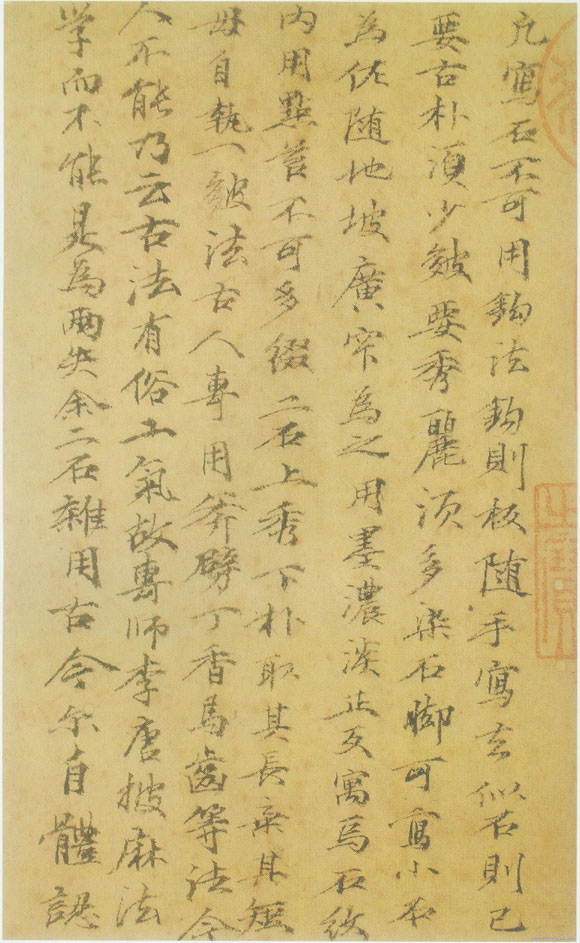 凡寫石不可用鈎法鈎則板随手寫去似石則已
要古朴湏少皴要秀麗湏多染石脚可寫小石
為佐随地坡廣窄為之用墨濃淡正反寓焉石紋
内用點苔不可多綴二石上秀下朴取其長棄其短
毋自執一皴法古人專用斧劈丁香馬齒等法今
人不能乃云古法有俗工氣故專師李唐披麻法
学而不能是為兩失余二石雜用古今尔自體認
之寶